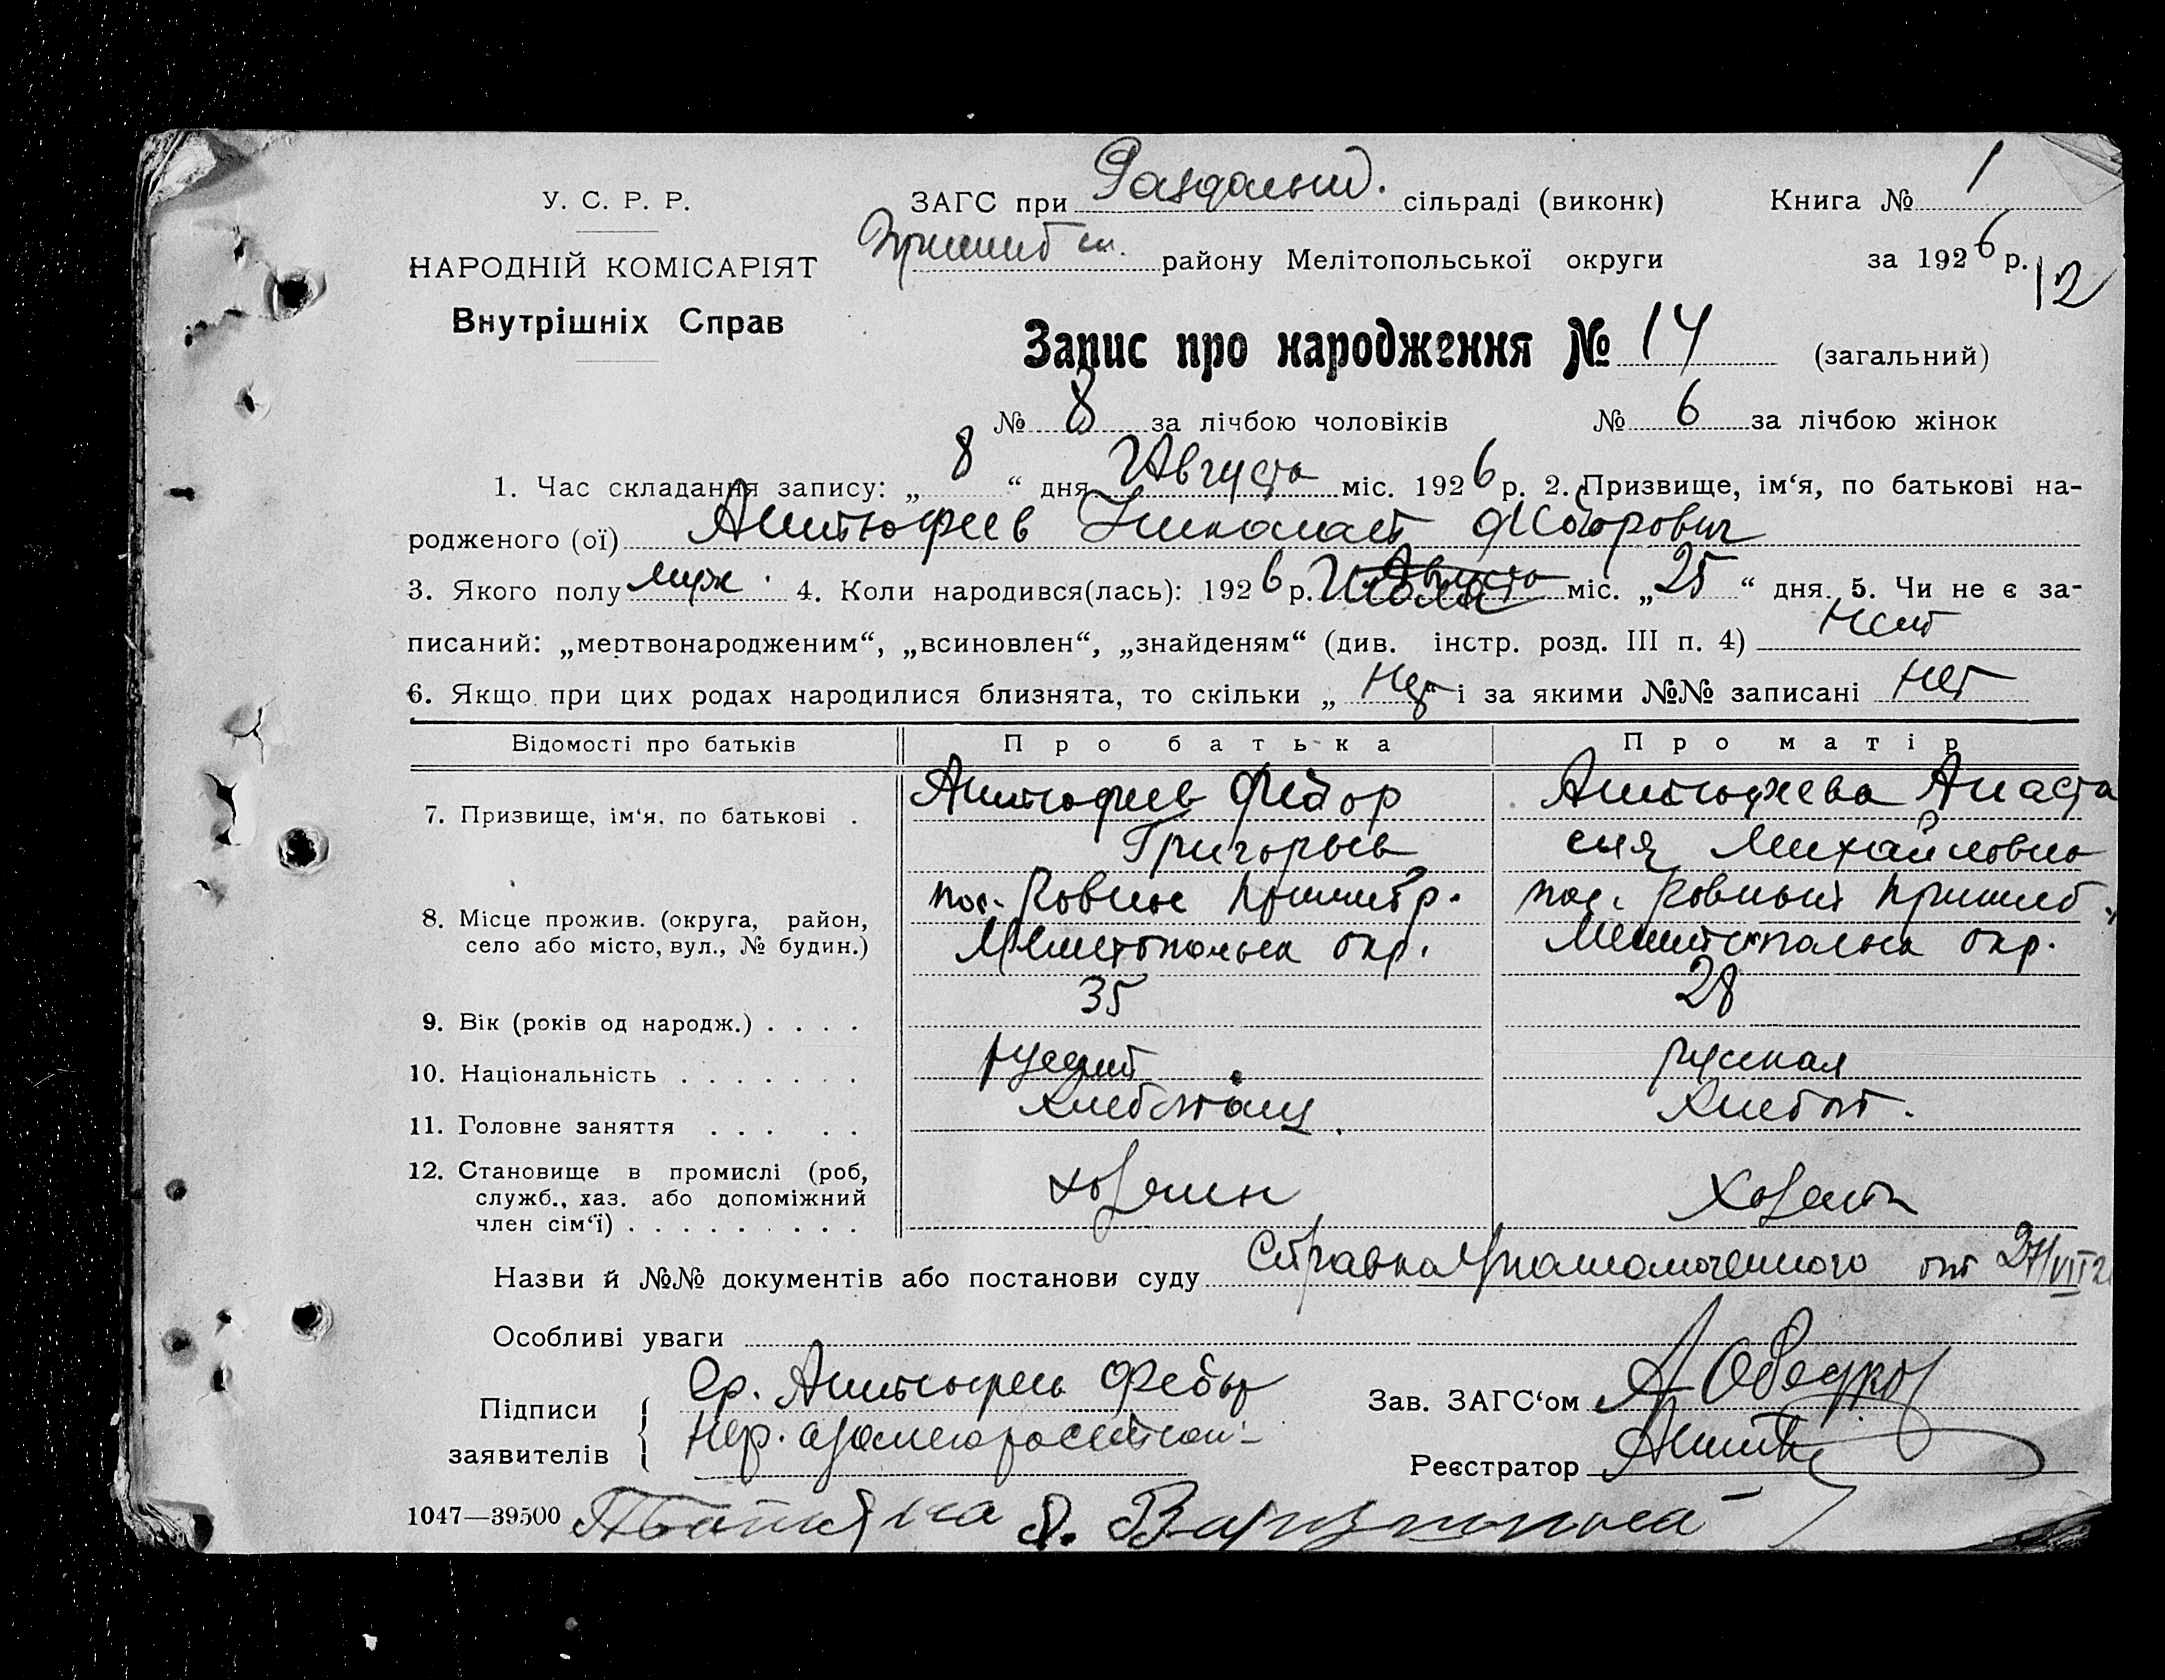 У. С. Р. Р.
НАРОДНІЙ КОМІСАРІЯТ
Внутрішніх Справ
ЗАГС при Раздольн. сільраді (виконк) Книга № 1
Пришибск. району Мелітопольської округи за 1926 р.
12
Запис про народження № 14 (загальний)
№ 8 за лічбою чоловіків № 6 за лічбою жінок
1. Час складання запису: „ 8 “ дня Августа міс. 1926 р. 2. Призвище, ім‘я, по батькові на-
родженого (ої) Алитюфеев Николай Федорович
3. Якого полу муж. 4. Коли народився(лась): 1926 р. Июля Августа міс. „ 25 “ дня. 5. Чи не є за-
писаний: „мертвонародженим“, „всиновлен“, „знайденям“ (див. інстр. розд. III п. 4) Нет
6. Якщо при цих родах народилися близнята, то скільки „ Нет “ і за якими №№ записані Нет
Відомості про батьків Про батька Про матір
7. Призвище, ім‘я, по батькові . Алитюфеев Федор Алитюфеева Анаста
Григорьев сия Михайловна
8. Місце прожив. (округа, район, пос. Ровное Пришиб р. пос. Ровный Пришиб.
село або місто, вул., № будин.) Мелитопольск окр. Мелитопольск окр.
9. Вік (років од народж.) . . . . 35 28
10. Національність . . . . . . . русский русская
11. Головне заняття . . . . . Хлебопашец. Хлебоп.
12. Становище в промислі (роб,
служб., хаз. або допоміжний хозяин Хозяйк
член сім‘ї) . . . . . . . . .
Назви й №№ документів або постанови суду Справка Уполномоченного от 27/VII 2
Особливі уваги
Підписи Гр. Алитюфеев Федор Зав. ЗАГС‘ом
заявителів Реєстратор
1047—39500